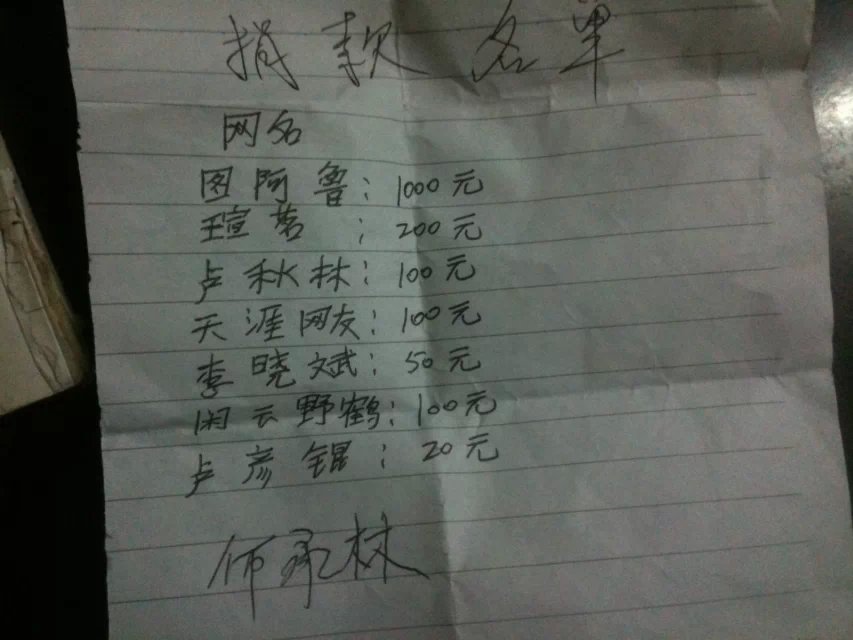 捐款名单
网名
图阿鲁：1000元
瑄茗：200元
卢秋林：100元
天涯网友：100元
李晓斌：50元
闲云野鹤：100元
卢彦锟：20元
师承林